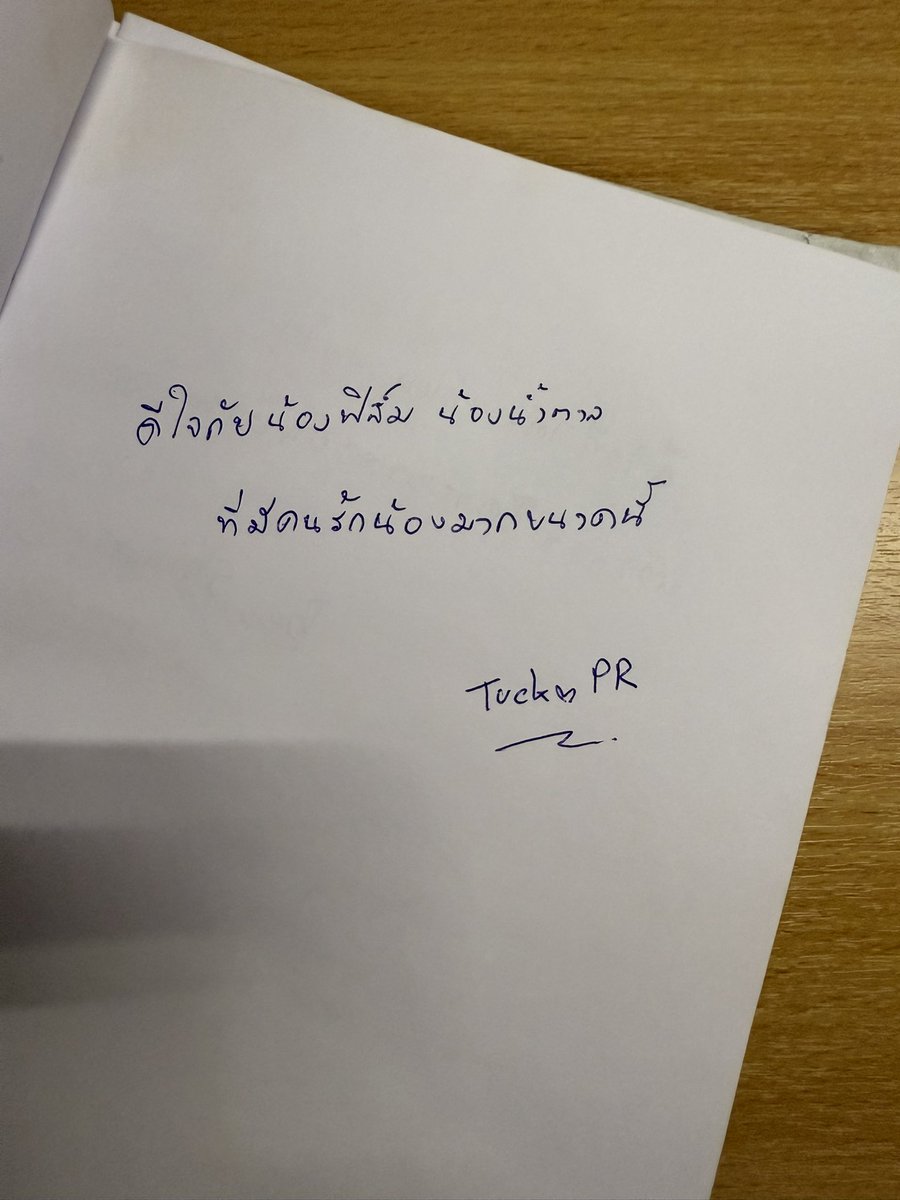 ดีใจกับน้องฟิล์ม น้องน้ำตาล
ที่มีคนรักน้องมากขนาดนี้
PR